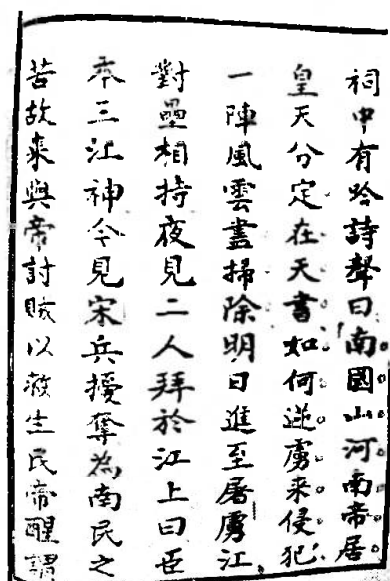 祠中有吟詩聲曰南國山河南帝居
皇天分定在天書如何逆虜来侵犯
一陣風雲盡掃除明日進至屠虜江
對壘相持夜見二人拜於江上曰臣
夲三江神今見宋兵擾奪為南民之
苦故来與帝討賊以救生民帝醒謂